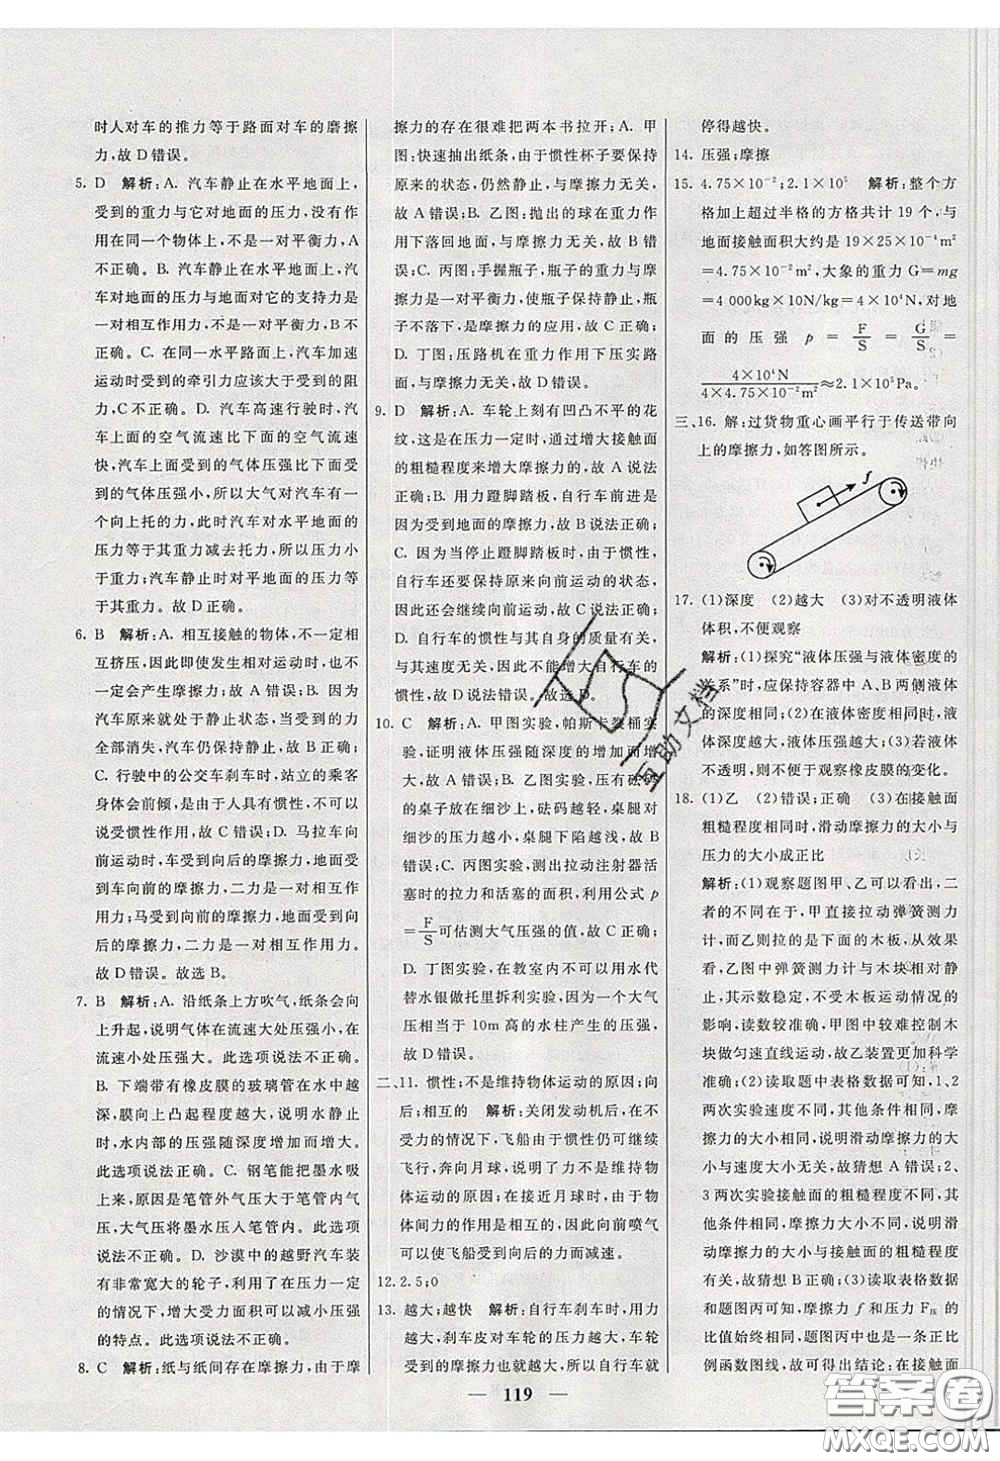 时人对车的推力等于路面对车的磨擦
力,故 D 错误。
5. D 解析:A. 汽车静止在水平地面上,
受到的重力与它对地面的压力,没有作
用在同一个物体上,不是一对平衡力,A
不正确。B. 汽车静止在水平地面上,
汽车对地面的压力与地面对它的支持力是
一对相互作用力,不是一对平衡力,B不
正确。C. 在同一水平路面,汽车加速
运动时受到的牵引力应该大于受到的阻
力,C不正确。D. 汽车高速行驶时,汽
车上面的空气流速比下面的空气流速
快,汽车上面受到的气体压强比下面受
到的气体压强小,所以大气对汽车有一
个向上托的力,此时汽车对水平地面的
压力等于其重力减去托力,所以压力小
于重力;汽车静止时对水平地面的压力等
于其重力。故 D 正确。
6. B 解析:A. 相互接触的物体,不一定相
互挤压,因此即使发生相对运动,也不
一定会产生摩擦力,故 A 错误;B. 因为
汽车原来就处于静止状态,当受到的力
全部消失,汽车仍保持静止,故 B 正确;
C. 行驶中的公交车刹车时,站立的乘客
身体会前倾,是由于惯性,但是不可以
说受惯性作用,故 C 错误;D. 马拉车向
前运动时,车受到向后的摩擦力,地面受
到车向前的摩擦力,二力是一对相互作用
力;马受到向前的摩擦力,地面受到向
后的摩擦力,二力是一对相互作用力。
故 D 错误。故选 B。
7. B 解析:A. 沿纸条上方吹气,纸条会向
上升起,说明气体在流速大处压强小,在
流速小处压强大。此选项说法不正确。
B. 下端带有橡皮膜的玻璃管在水中越
深,膜向上凸起程度越大,说明水静止
时,水内部的压强随深度增加而增大。
此选项说法正确。C. 钢笔能把墨水吸
上来,原因是笔管外气压大于笔管内气
压,大气压将墨水压入笔管内。此选项
说法不正确。D. 沙漠中的越野汽车装
有非常宽大的轮子,利用了在压力一定
的情况下,增大受力面积可以减小压强
的特点。此选项说法不正确。
8. C 解析:纸与纸间存在摩擦力,由于摩
擦力的存在很难把两本书拉开;A. 甲
图:快速抽出纸条,由于惯性杯子要保持
原来的状态,仍然静止,与摩擦力无关,
故 A 错误;B. 乙图:抛出的球在重力作
用下落回地面,与摩擦力无关,故 B 错
误;C. 丙图:手握瓶子,瓶子的重力与摩
擦力是一对平衡力,使瓶子保持静止,瓶
子不下落,是摩擦力的应用,故 C 正确;
D. 丁图:压路机在重力作用下压实路
面,与摩擦力无关,故 D 错误。
9. D 解析:A. 车轮上刻有凹凸不平的花
纹,这是在压力一定时,通过增大接触面
的粗糙程度来增大摩擦力,故 A 说法
正确;B. 用力蹬脚踏板,自行车前进是
因为受到地面的摩擦,故 B 说法正确;
C. 因为当停止蹬脚踏板时,由于惯性,
自行车要保持原来向前运动的状态,所
以还会继续向前运动,故 C 说法正确;
D. 自行车的惯性与其自身的质量有关,
与其速度无关。因此不能增大自行车的
惯性,故 D 说法错误。故选 D。
10. C 解析:A. 甲图实验,帕斯卡裂桶实
验,证明液体压强随深度的增加而增
大,故 A 错误;B. 乙图实验,压有砝码
的桌子放在细沙上,砝码越轻,桌腿对
细沙的压力越小,桌腿下陷越浅,故 B
错误;C. 丙图实验,测出拉动注射器活
塞时的拉力和活塞的面积,利用公式 p
=F/S可估测大气压强的值,故 C 正确;
D. 丁图实验,在教室内不可以用水代
替水银做托里拆利实验,因为一个大气
压相当于 10m 高的水柱产生的压强,
故 D 错误。
二、11. 惯性;不是维持物体运动的原因;向
后;相互的 解析:关闭发动机后,在不
受力的情况下,飞船由于惯性仍可继续
飞行,奔向月球,说明力不是维持物体
运动的原因;在接近月球时,由于物
体间力的作用是相互的,向前喷气
可以使飞船受到向后的力而减速。
12. 2.5;0
13. 越大;越快 解析:自行车刹车时,用力
越大,刹车皮对车轮的压力越大,车轮
受到的摩擦力也就越大,所以自行车就
停得越快。
14. 压强;摩擦
15. 4.75×10⁻²;2.1×10⁵ 解析:整个方
格加上超过半格的方格共计 19 个,与
地面接触面积大约是 19×25×10⁻⁴m²
=4.75×10⁻²m²,大象的重力 G=mg
=4 000kg×10N/kg=4×10⁴N,对地
面 的 压 强 p = F/S = G/S =
4×10⁴N/(4×4.75×10⁻²m²)≈2.1×10⁵Pa。
三、16. 解:过货物重心画平行于传送带向
上的摩擦力,如答图所示。
f
17. (1)深度 (2)越大 (3)对不透明液体
体积,不便观察
解析:(1)探究“液体压强与液体密度的
关系”时,应保持容器中 A、B 两侧液体
的深度相同;(2)液体密度相同时,液体
的深度越大,液体压强越大;(3)若液体
不透明,则不便于观察橡皮膜的变化。
18. (1)乙 (2)错误;正确 (3)在接触面
粗糙程度相同时,滑动摩擦力的大小与
压力的大小成正比
解析:(1)观察题图甲、乙可以看出,二
者的不同在于,甲直接拉动弹簧测力
计,而乙则拉的是下面的木板,反复实验
发现,乙图中弹簧测力计与木块静止,
其示数稳定,不受木板运动情况的
影响,读数较准确,甲图中较难控制木
块做匀速直线运动,故乙装置更加科学
准确。(2)读取题中表格数据可知,1、2
两次实验速度不同,其他条件相同,摩
擦力的大小相同,说明滑动摩擦力的大
小与速度大小无关,故猜想 A 错误;2、
3 两次实验接触面的粗糙程度不同,其
他条件相同,摩擦力大小不同,说明滑动
摩擦力的大小与接触面的粗糙程度有
关,故猜想 B 正确;(3)读取表格数据与
题图丁可知,摩擦力 f 和压力 F压
的比值始终不变,即题图丙中的图线为正比
例函数图线,故可得出结论:在接触面
119
互助文档
答案卷
MXQE.COM